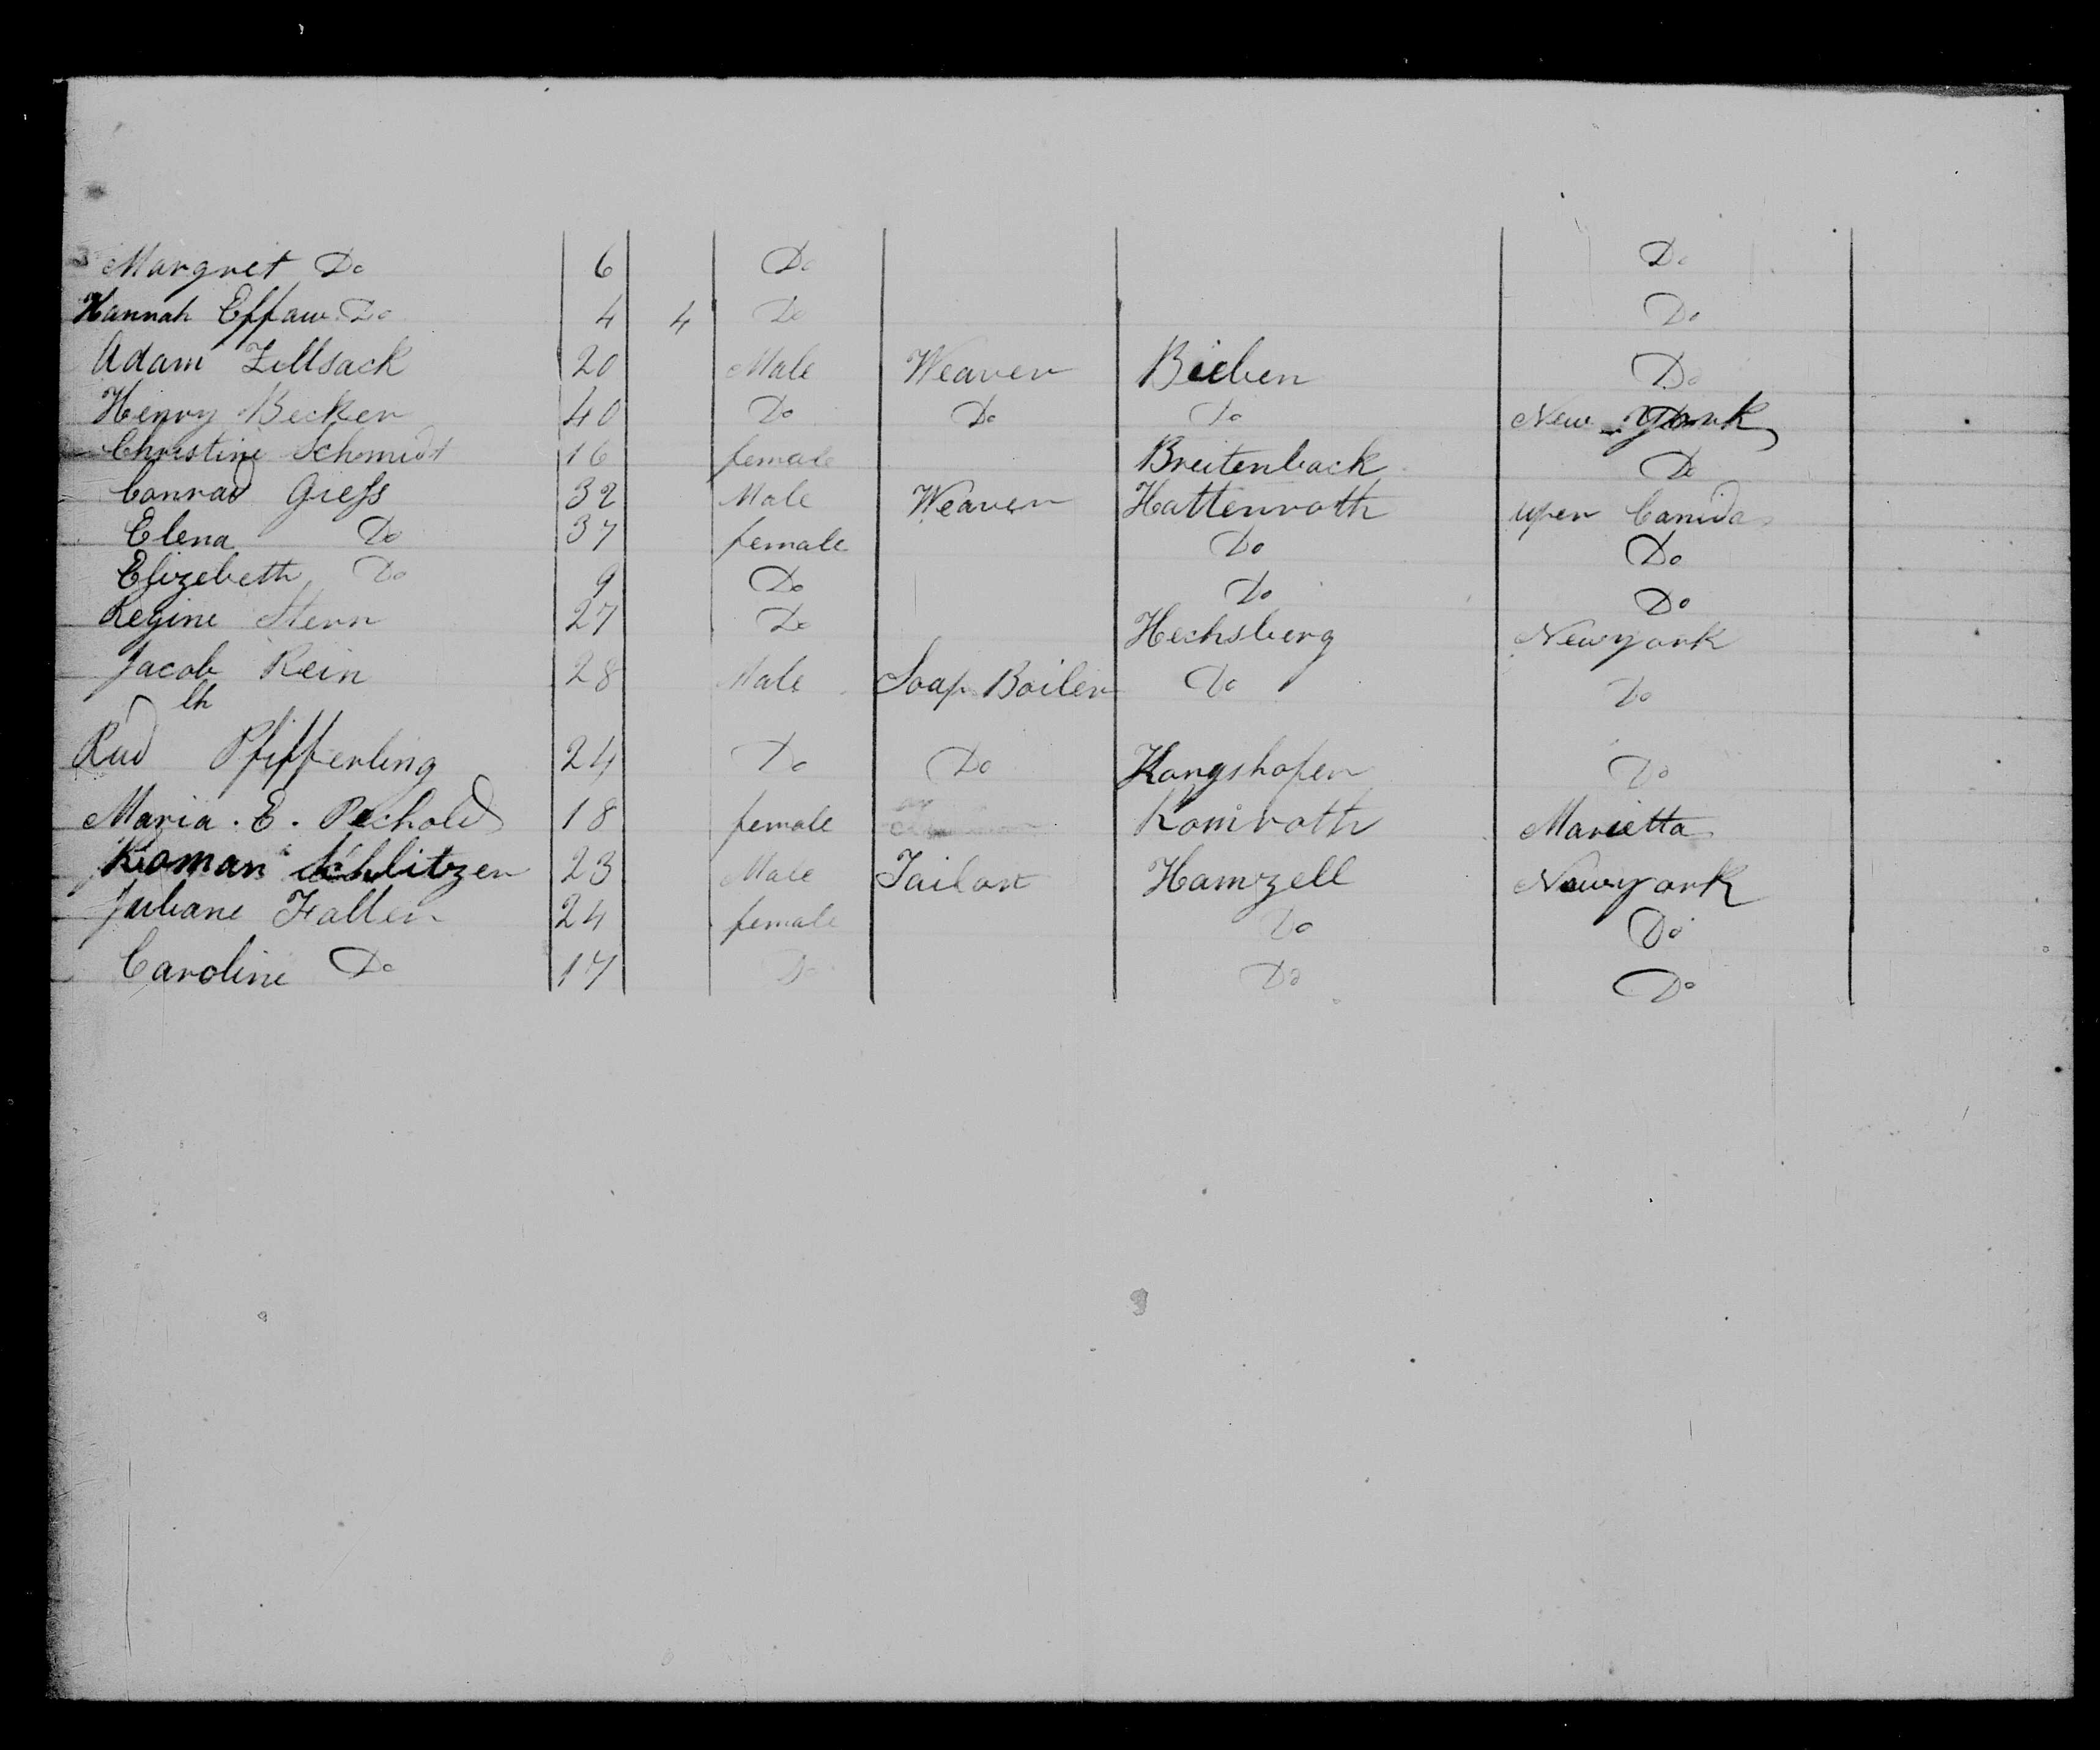 Margret Do 6 Do Do
Hannah Effaw Do 4 4 Do Do
Adam Zellsack 20 Male Weaver Bieben Do
Henry Becker 40 Do Do Do New York
Christine Schmidt 16 female Breitenback Do
Conrad Giess 32 Male Weaver Hattenroth uper Canida
Elena Do 37 female Do Do
Elizebeth Do 9 Do Do Do
Regine Stern 27 Do Hechsberg Newyork
Jacob Rein 28 Male Soap Boiler Do Do
lh
Rud Pfifferling 24 Do Do Kongshofen Do
Maria . E . Pechold 18 female Komroth Marietta
Roman Schlitzer 23 Male Tailor Hamzell Newyork
Juliane Faller 24 female Do Do
Caroline Do 17 Do Do Do